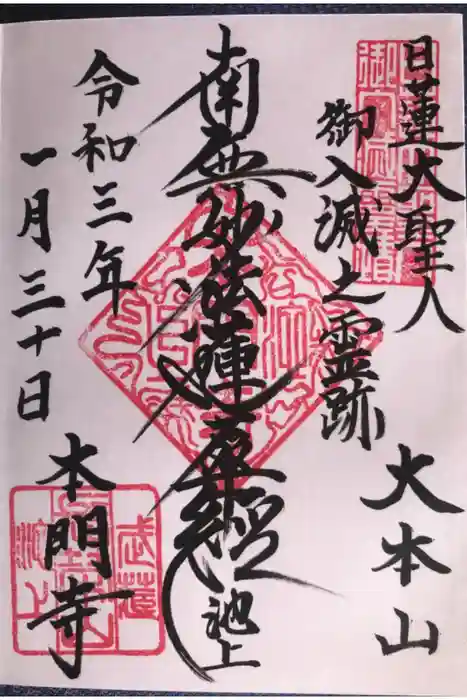 日蓮大聖人
御入滅之霊跡
大本山
南無妙法蓮華経
池上
本門寺
令和三年
一月三十日